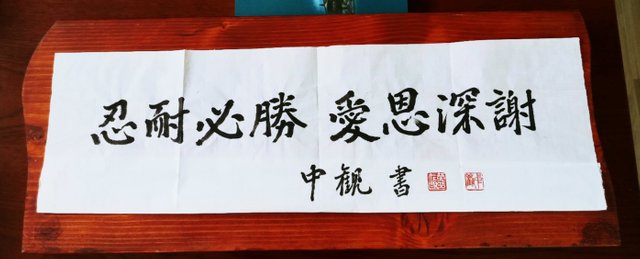 忍耐必勝 愛恩深謝
中観 書